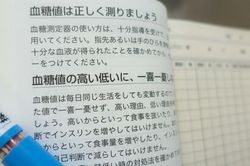 血糖値は正しく測りましょう
血糖測定器の使い方は、十分指導を受けて
用いてください。指先あるいは手のひらを
十分な血液が得られたことを確かめてから、
ーをつけてください。
血糖値の高い低いに、一喜一憂し
血糖値は毎日同じ生活をしても変動するので
値で一喜一憂せず、高い理由、低い理由
しょう。高いからといって食事を抜いたり、
断でインスリンを増やしてはいけません。
からといって食事量を増やしたり、
己判断で減らしてはいけません。
低い時の対処法を確